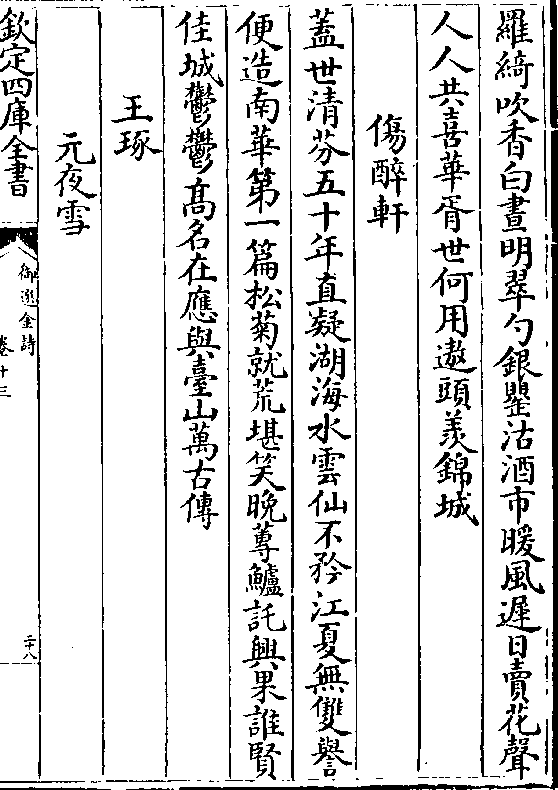 羅綺吹香白晝明翠勺銀罌沽酒市暖風遲日賣花聲
人人共喜華胥世何用遨頭羨錦城
傷醉軒
蓋世清芬五十年直疑湖海水雲仙不矜江夏無雙譽
便造南華第一篇松菊就荒堪笑晚蓴鱸託興果誰賢
佳城鬱鬱髙名在應與臺山萬古傳
王琢
元夜雪
欽定四庫全書
御選金詩
卷十三
二十八